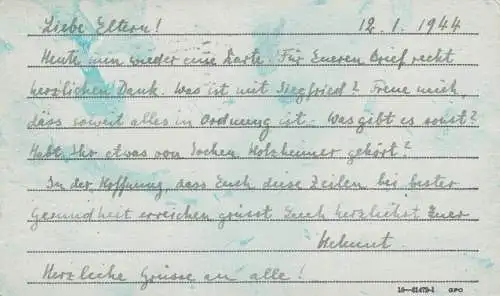 Liebe Eltern! 12.1.1944
Heute nun wieder eine Karte. Für Eueren Brief recht
herzlichen Dank. Was ist mit Siegfried? Freue mich,
dass soweit alles in Ordnung ist. Was gibt es sonst?
Habt Ihr etwas von Jochen Holzheimer gehört?
In der Hoffnung dass Euch diese Zeilen bei bester
Gesundheit erreichen grüsst Euch herzlichst Euer
Helmut.
Herzliche Grüsse an alle!
16—81473-1 GPO